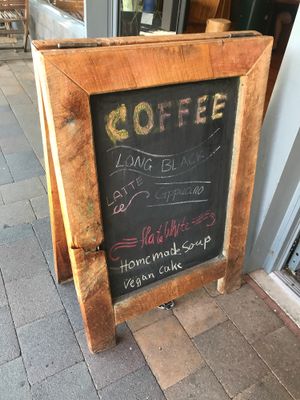 COFFEE
LONG BLACK
LATTE
Cappuccino
flat White
Homemade Soup
vegan cake